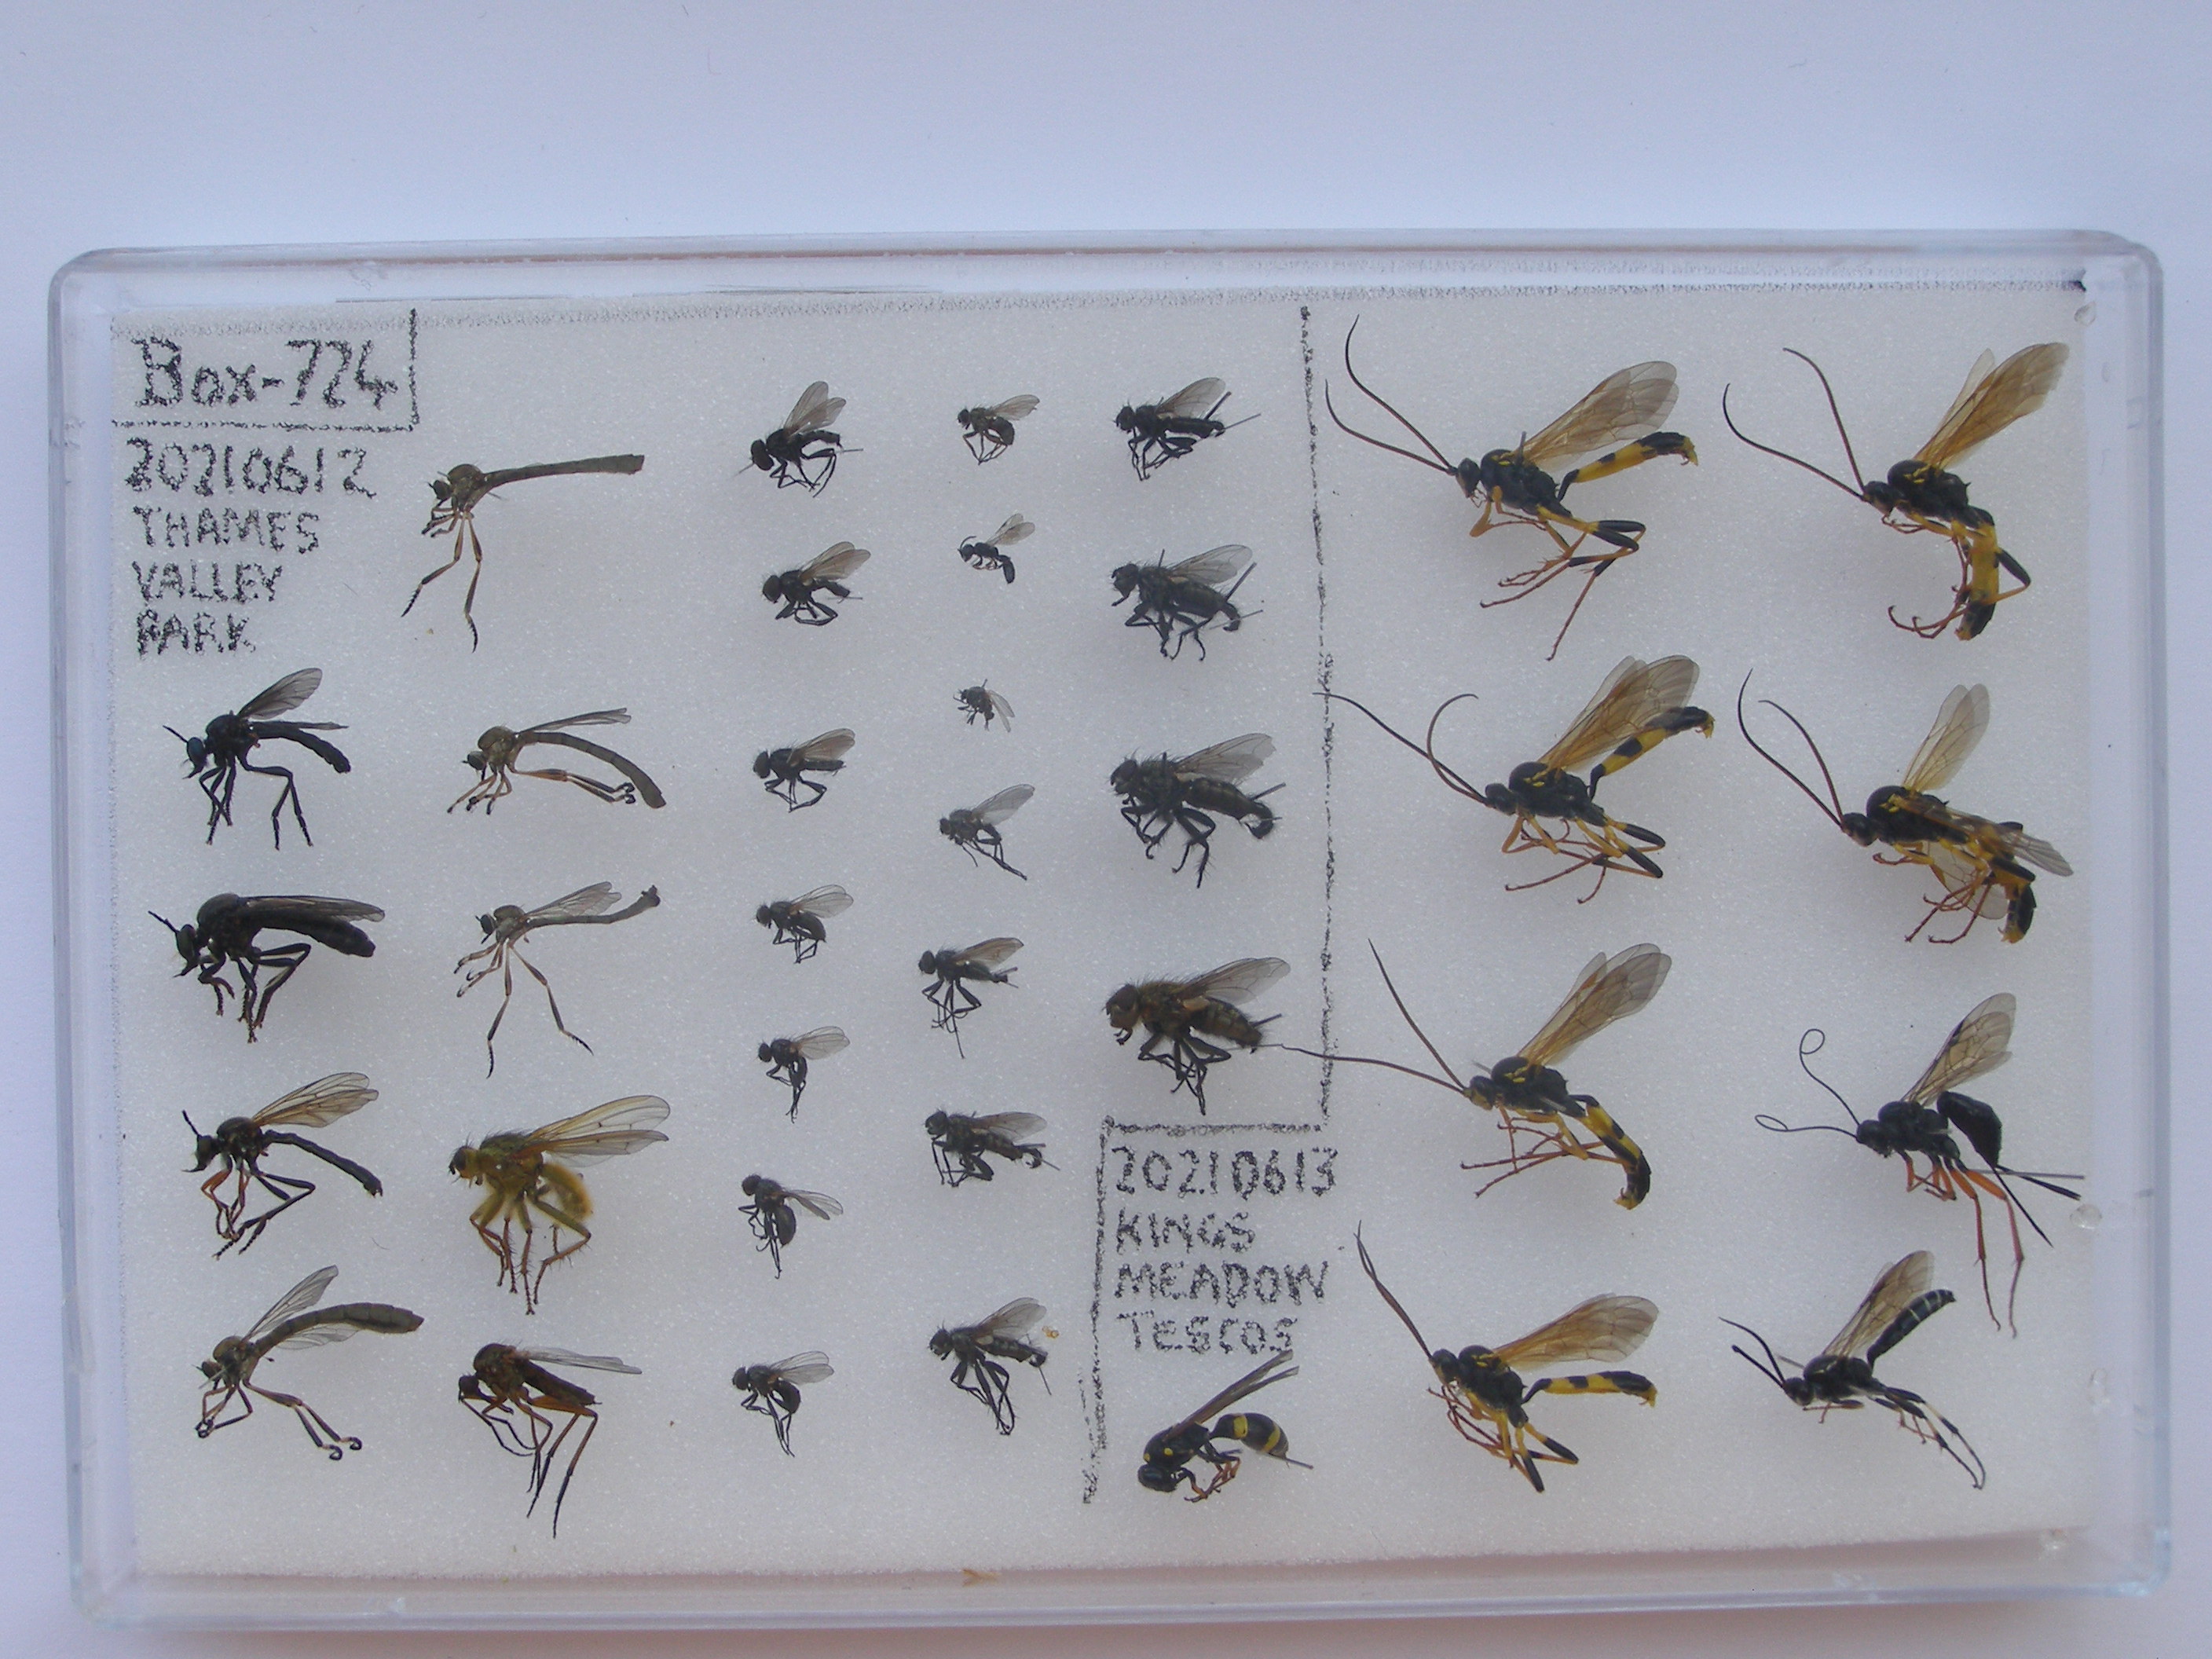 Box-724
20210612
THAMES
VALLEY
PARK
20210613
KINGS
MEADOW
TESCOS